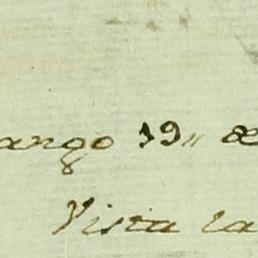 ango 19,, de
Vista la